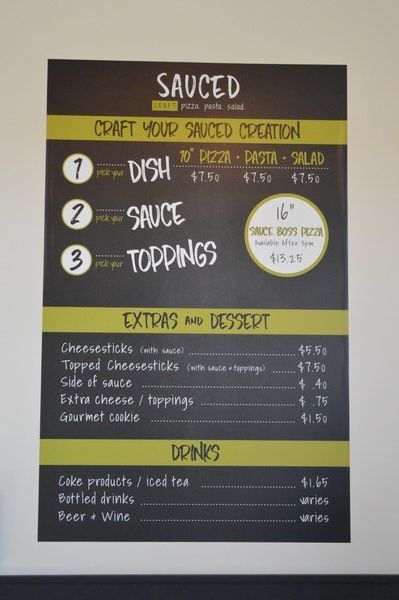 SAUCED
CRAFT pizza. pasta. salad.
CRAFT YOUR SAUCED CREATION
1 pick your DISH
10" PIZZA • PASTA • SALAD
$7.50 $7.50 $7.50
2 pick your SAUCE
3 pick your TOPPINGS
16"
SAUCE BOSS PIZZA
Available After 3pm
$13.25
EXTRAS AND DESSERT
Cheesesticks (with sauce) $5.50
Topped Cheesesticks (with sauce + toppings) $7.50
Side of sauce $ .40
Extra cheese / toppings $ .75
Gourmet cookie $1.50
DRINKS
Coke products / iced tea $1.65
Bottled drinks varies
Beer + Wine varies